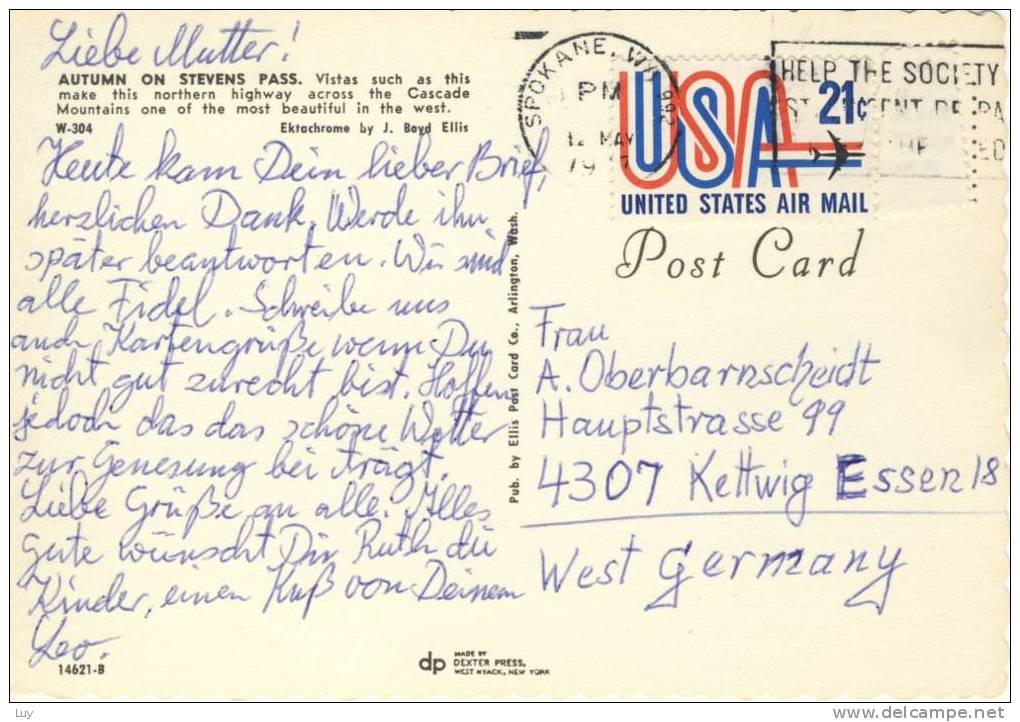 Liebe Mutter!
AUTUMN ON STEVENS PASS. Vistas such as this
make this northern highway across the Cascade
Mountains one of the most beautiful in the west.
W-304 Ektachrome by J. Boyd Ellis
Heute kam Dein lieber Brief,
herzlichen Dank. Werde ihn
später beantworten. Wir sind
alle Fidel. Schreibe uns
auch Kartengrüße, wenn Du
nicht gut zurecht bist. Hoffen
jedoch das das schöne Wetter
zur Genesung bei trägt.
Liebe Grüße an alle. Alles
gute wünscht Dir Ruth die
Kinder, einen Kuß von Deinem
Leo.
14621-B
Pub. by Ellis Post Card Co., Arlington, Wash.
dp
MADE BY
DEXTER PRESS,
WEST NYACK, NEW YORK
SPOKANE, 992
PM
12 MAY
USA 21c
UNITED STATES AIR MAIL
HELP THE SOCIETY
Post Card
Frau
A. Oberbarnscheidt
Hauptstrasse 99
4307 Kettwig Essen 18
West Germany
Luy
www.delcampe.net